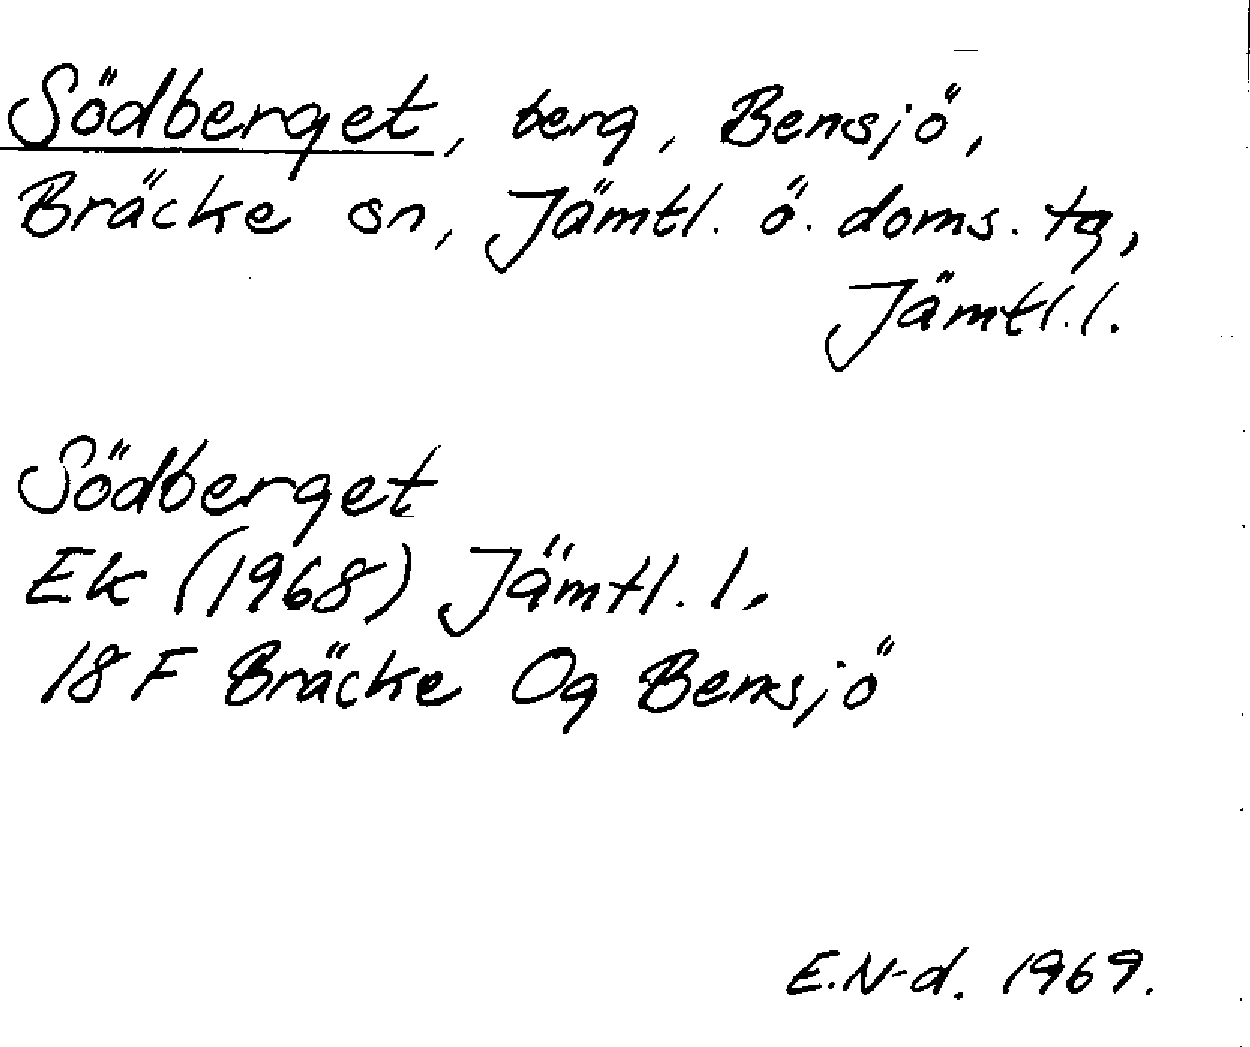 Södberget, berg, Bensjö,
Bräcke sn, Jämtl. ö. doms. tg,
Jämtl. l.
Södberget
Ek (1968) Jämtl. l.
18 F Bräcke Og Bensjö
E.N-d. 1969.